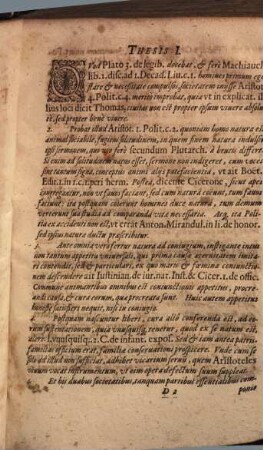 THESIS I.
Vod Plato 3. de legib. docebat, & ferè Machiauel.
lib. 1. disc. ad 1. Decad. Liu. c. 1. homines primum ege-
state & necessitate compulsos, societatem inisse Aristot
4. Polit. c. 4. meritò improbat, quia vt in explicat. il-
lius loci dicit Thomas, ciuitas non est propter ipsum viuere absolu-
tè, sed propter bene viuere.
2. Probat illud Aristot. 1. Polit. c. 2. quoniam homo natura est
animal sociabile, fugiens solitudinem, in quem finem natura indulsit
ipsi sermonem, quo vti ferè secundum Plutarch. à brutis differt.
Si enim ad solitudinem natus esset, sermone non indigeret, cum voces
sint tantum signa, conceptus animi aliis patefacientia, vt ait Boet.
Edit. 1. in l. c. 1. peri herm. Postea, dicente Cicerone, sicut apes
congregantur, non vt fauos faciant, sed cum natura coeant, tum fauos
faciunt: ita postquam coierunt homines duce natura, tum demum
verterunt sua studia ad comparanda vitæ necessaria. Erg, ita Poli-
tia ex accidenti non est, vt errat Anton. Mirandul. in li. de honor.
sed ipsius natura ductu proficitur.
3. Ante omnia verò fertur natura ad coniugium, instigante innu-
tum appetitu vniuersali, qui prius circa generalitatem limita-
ri contendit, sed & particulari, ex quo maris & fœmina coniunctio-
nem descendere ait Iustinian. de iur. nat. Inst. & Cicer. 1. de offic.
Commune animantibus omnibus est coniunctionis appetitus, procre-
andi causa, & cura eorum, quæ procreata sunt. Huic autem appetitui
honestè satisfieri nequit, nisi in coniugio.
4. Postquam nascuntur liberi, cura alia conferenda est, ad eo-
rum sustentationem, quia vnusquisq, tenetur, quod ex se natum est,
alere. l. vnusquisq. 2. C. de infant. expos. Sed & eam antea patri-
familias officium erat, familiæ conseruationi prospicere. Vnde cum se
solo ad illud non sufficiat, adhibet vicarium serui, quem Aristoteles
suum vocat instrumentum, vt eius opera defectum suum suppleat.
Et his duabus societatibus, tanquam partibus essentialibus com-
D 2
panio